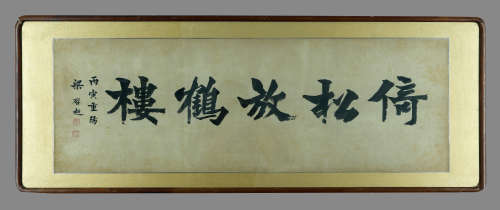 倚松放鶴樓
丙寅重陽
梁啟超